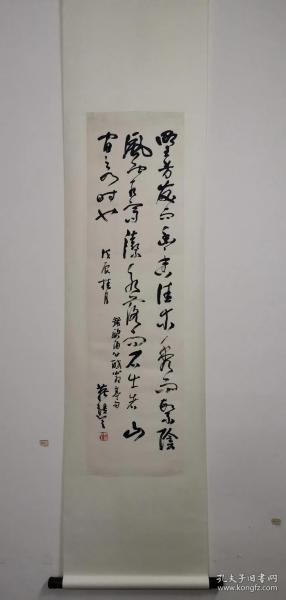 野芳发而幽香佳木秀而繁阴
风霜高洁水落而石出者山
间之四时也
戊辰桂月
录欧阳公醉翁亭句
孔夫子旧书网
www.kongfz.com